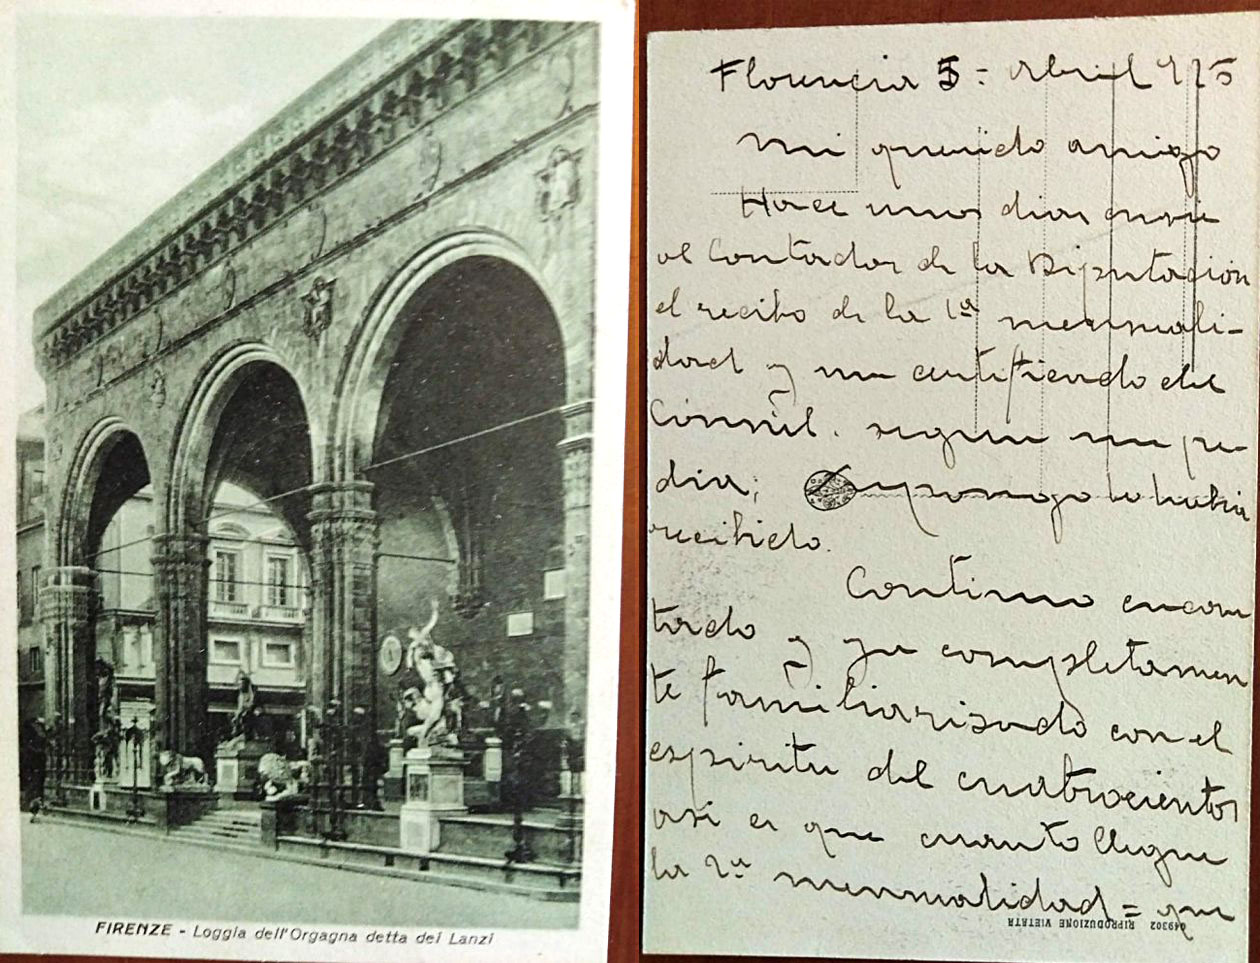 FIRENZE - Loggia dell'Orgagna detta dei Lanzi
Florencia 5 = abril 925
mi querido amigo
Hace unos dias envie
al Contador de la Diputación
el recibo de la 1ª mensuali-
dad y un certificado del
Cónsul. segun me pe
dia; Supongo lo habrá
recibido.
Continuo encan
tado y ya completamen
te familiarisado con el
espiritu del cuatrocientos
asi es que cuanto llegue
la 2ª mensualidad = que
049302 RIPRODUZIONE VIETATA